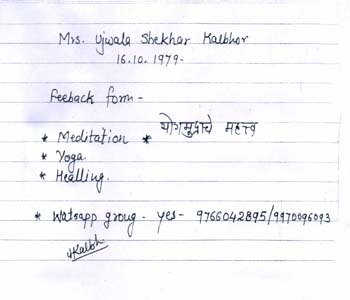 Mrs. Ujwala Shekhar Kalbhor
16.10.1979-
Feeback form -
* Meditation * योगमुद्राचे महत्त्व
* Yoga
* Healling.
* Watsapp groug - yes - 9766042895/9970096093
UKalbh